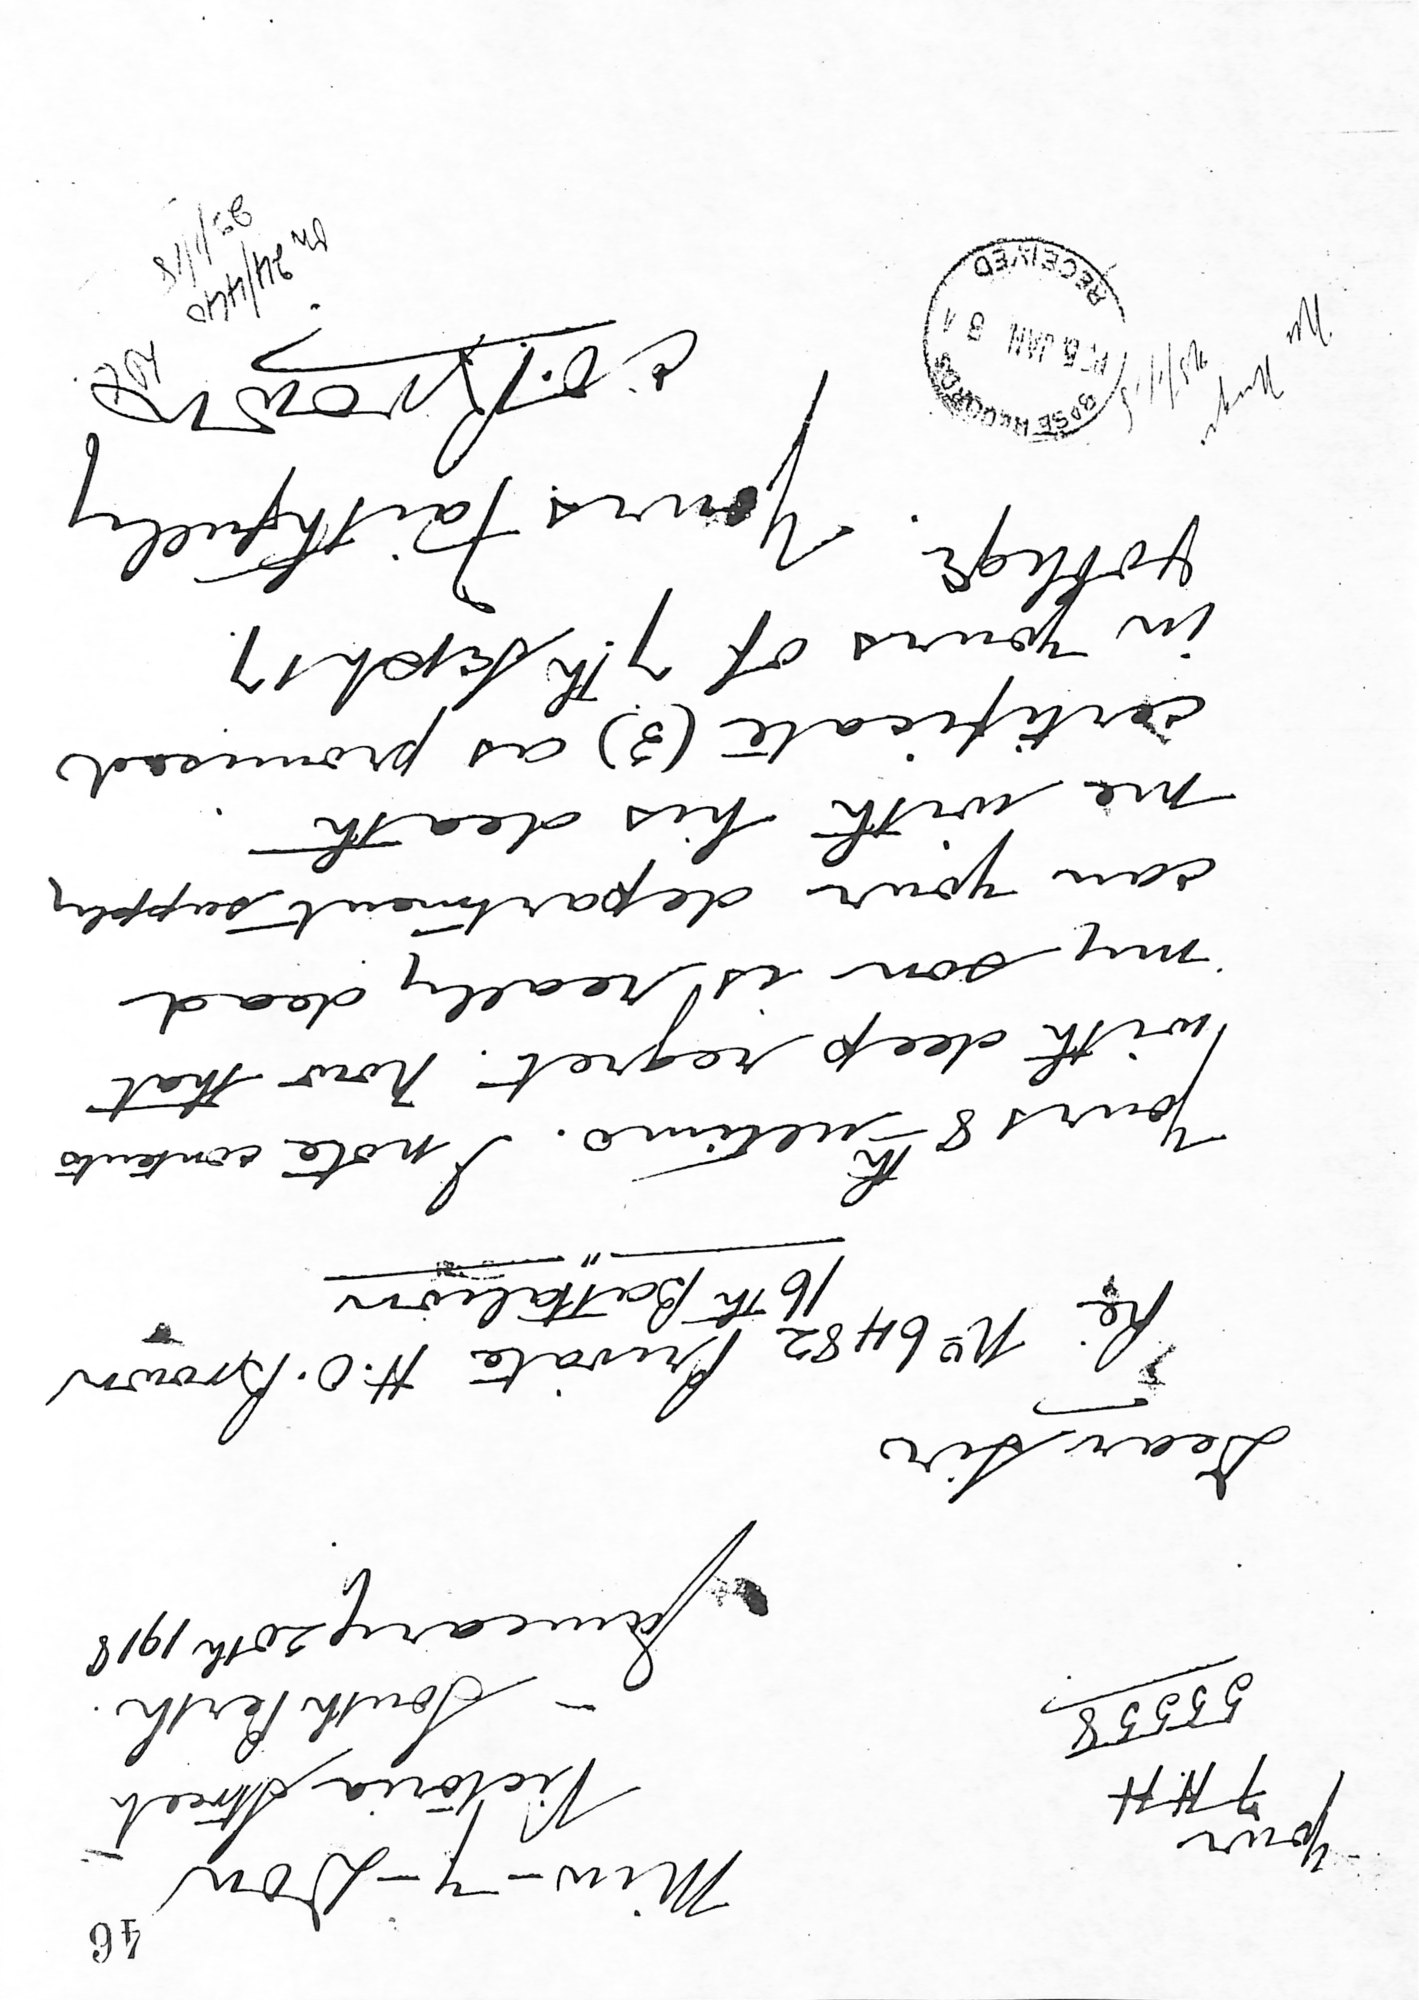 46
Min-y-Don
Victoria Street
- South Perth.
January 20th 1918
Your
7 H.H
55558
Dear Sir
Re. No 6482 Private H.O. Brown
16th Battalion
Yours 8th ultimo. I note contents
with deep regret. Now that
my son is really dead
can your department supply
me with his death
certificate (3) as promised
in yours of 7th Sept 17
& oblige. Yours Faithfully
C.O. Brown
BASE RECORDS
JAN
RECEIVED
25/1/18
24/440
25/1/18